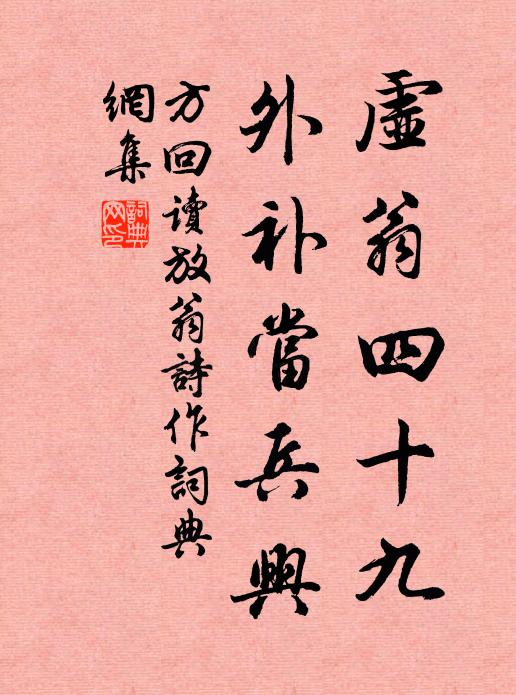 虛翁四十九
外补當兵興
方回讀放翁詩作詞典
網集
詞典網印